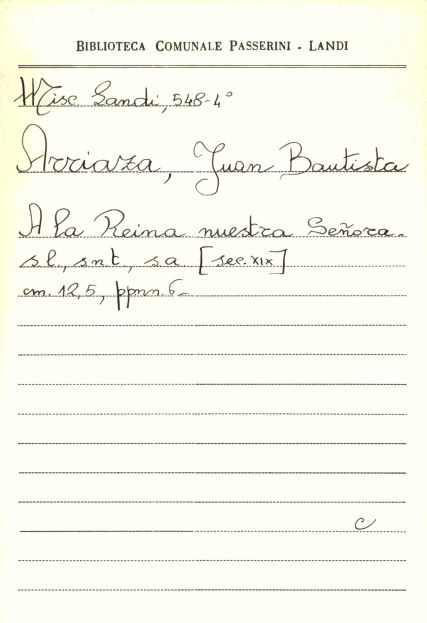 BIBLIOTECA COMUNALE PASSERINI - LANDI
Misc. Landi, 548-4°
Arriaza, Juan Bautista
A la Reina nuestra Señora.
s.l., s.n.t., s.a. [sec. XIX]
cm. 12,5, ppnn. 6_
c